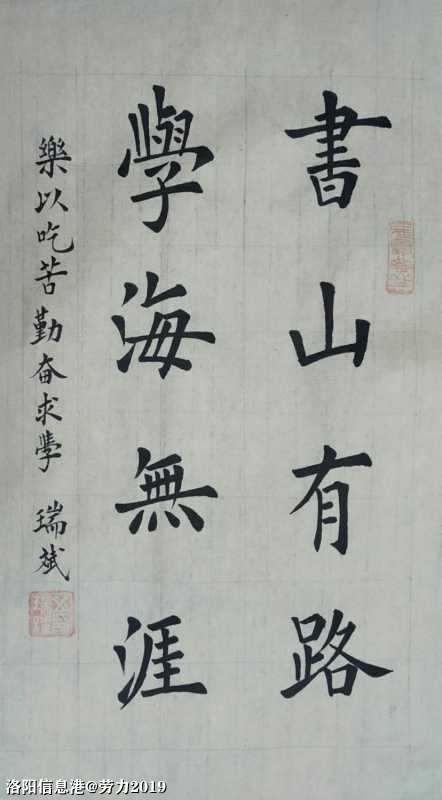 書山有路
學海無涯
樂以吃苦勤奋求學 瑞斌
洛阳信息港@劳力2019